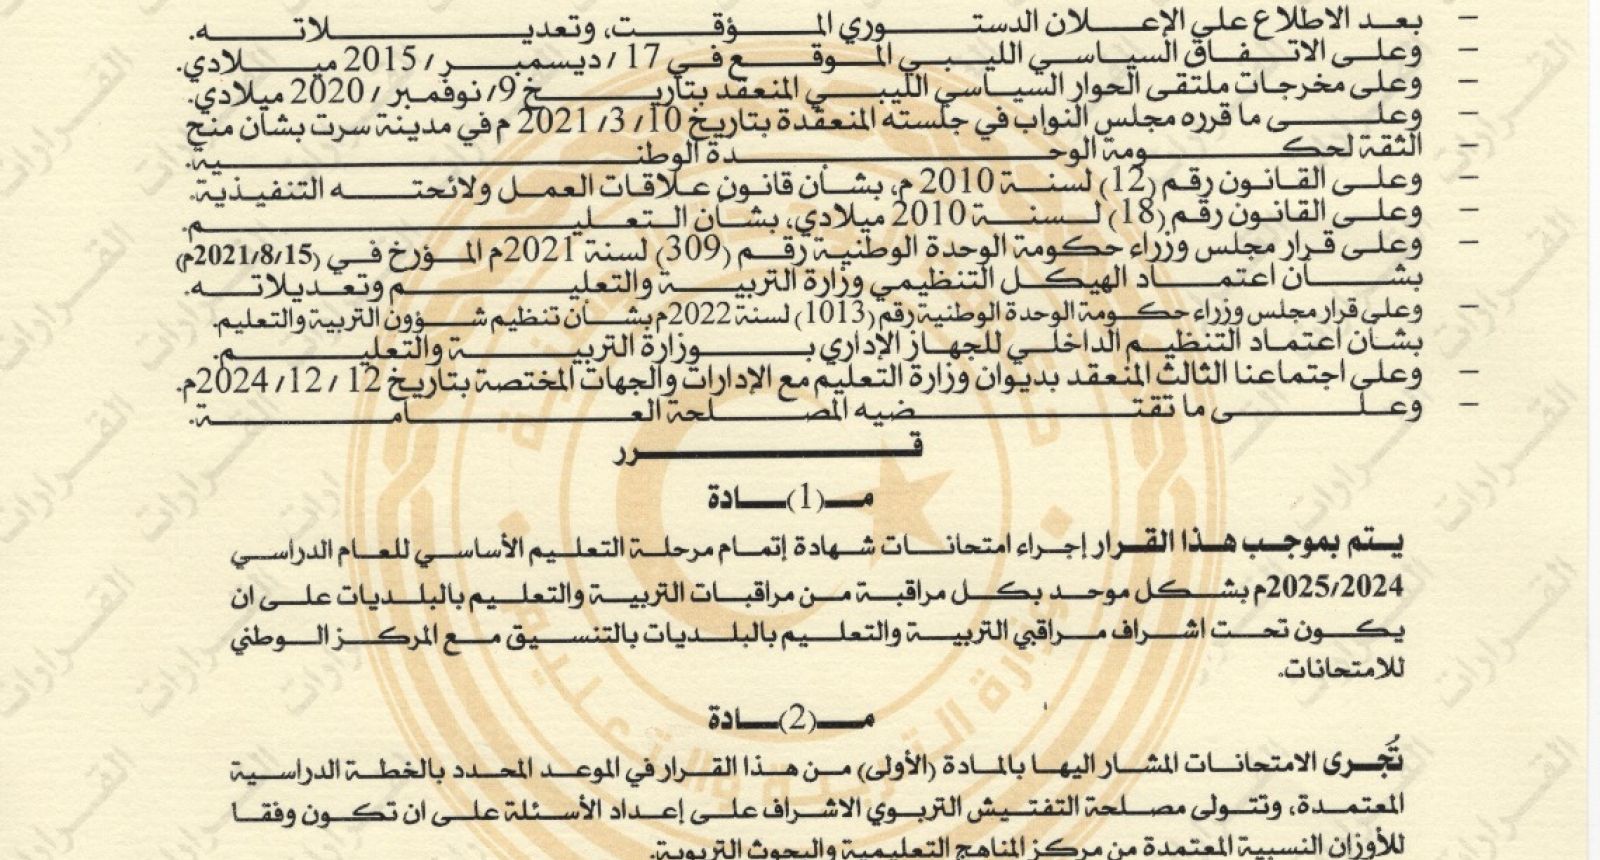 – بعد الاطلاع على الإعلان الدستوري المؤقت، وتعديلاته.
– وعلى الاتفاق السياسي الليبي الموقع في 17 / ديسمبر / 2015 ميلادي.
– وعلى مخرجات ملتقى الحوار السياسي الليبي المنعقد بتاريخ 9/ نوفمبر / 2020 ميلادي.
– وعلى ما قرره مجلس النواب في جلسته المنعقدة بتاريخ 10/ 3/ 2021 م في مدينة سرت بشأن منح
– الثقة لحكومة الوحدة الوطنية.
– وعلى القانون رقم (12) لسنة 2010 م، بشأن قانون علاقات العمل ولائحته التنفيذية.
– وعلى القانون رقم (18) لسنة 2010 ميلادي، بشأن التعليم.
– وعلى قرار مجلس وزراء حكومة الوحدة الوطنية رقم (309) لسنة 2021م المؤرخ في (2021/8/15م)
بشأن اعتماد الهيكل التنظيمي وزارة التربية والتعليم وتعديلاته.
– وعلى قرار مجلس وزراء حكومة الوحدة الوطنية رقم (1013) لسنة 2022م بشأن تنظيم شؤون التربية والتعليم.
بشان اعتماد التنظيم الداخلي للجهاز الإداري بوزارة التربية والتعليم.
– وعلى اجتماعنا الثالث المنعقد بديوان وزارة التعليم مع الإدارات والجهات المختصة بتاريخ 12 / 12/ 2024م.
– وعلى ما تقتضيه المصلحة العامة.
قرر
مـ(1)ـادة
يتم بموجب هذا القرار إجراء امتحانات شهادة إتمام مرحلة التعليم الأساسي للعام الدراسي
2025/2024م بشكل موحد بكل مراقبة من مراقبات التربية والتعليم بالبلديات على ان
يكون تحت اشراف مراقبي التربية والتعليم بالبلديات بالتنسيق مع المركز الوطني
للامتحانات.
مـ(2)ـادة
تُجرى الامتحانات المشار اليها بالمادة (الأولى) من هذا القرار في الموعد المحدد بالخطة الدراسية
المعتمدة، وتتولى مصلحة التفتيش التربوي الاشراف على إعداد الأسئلة على ان تكون وفقا
للأوزان النسبية المعتمدة من مركز المناهج التعليمية والبحوث التربوية.